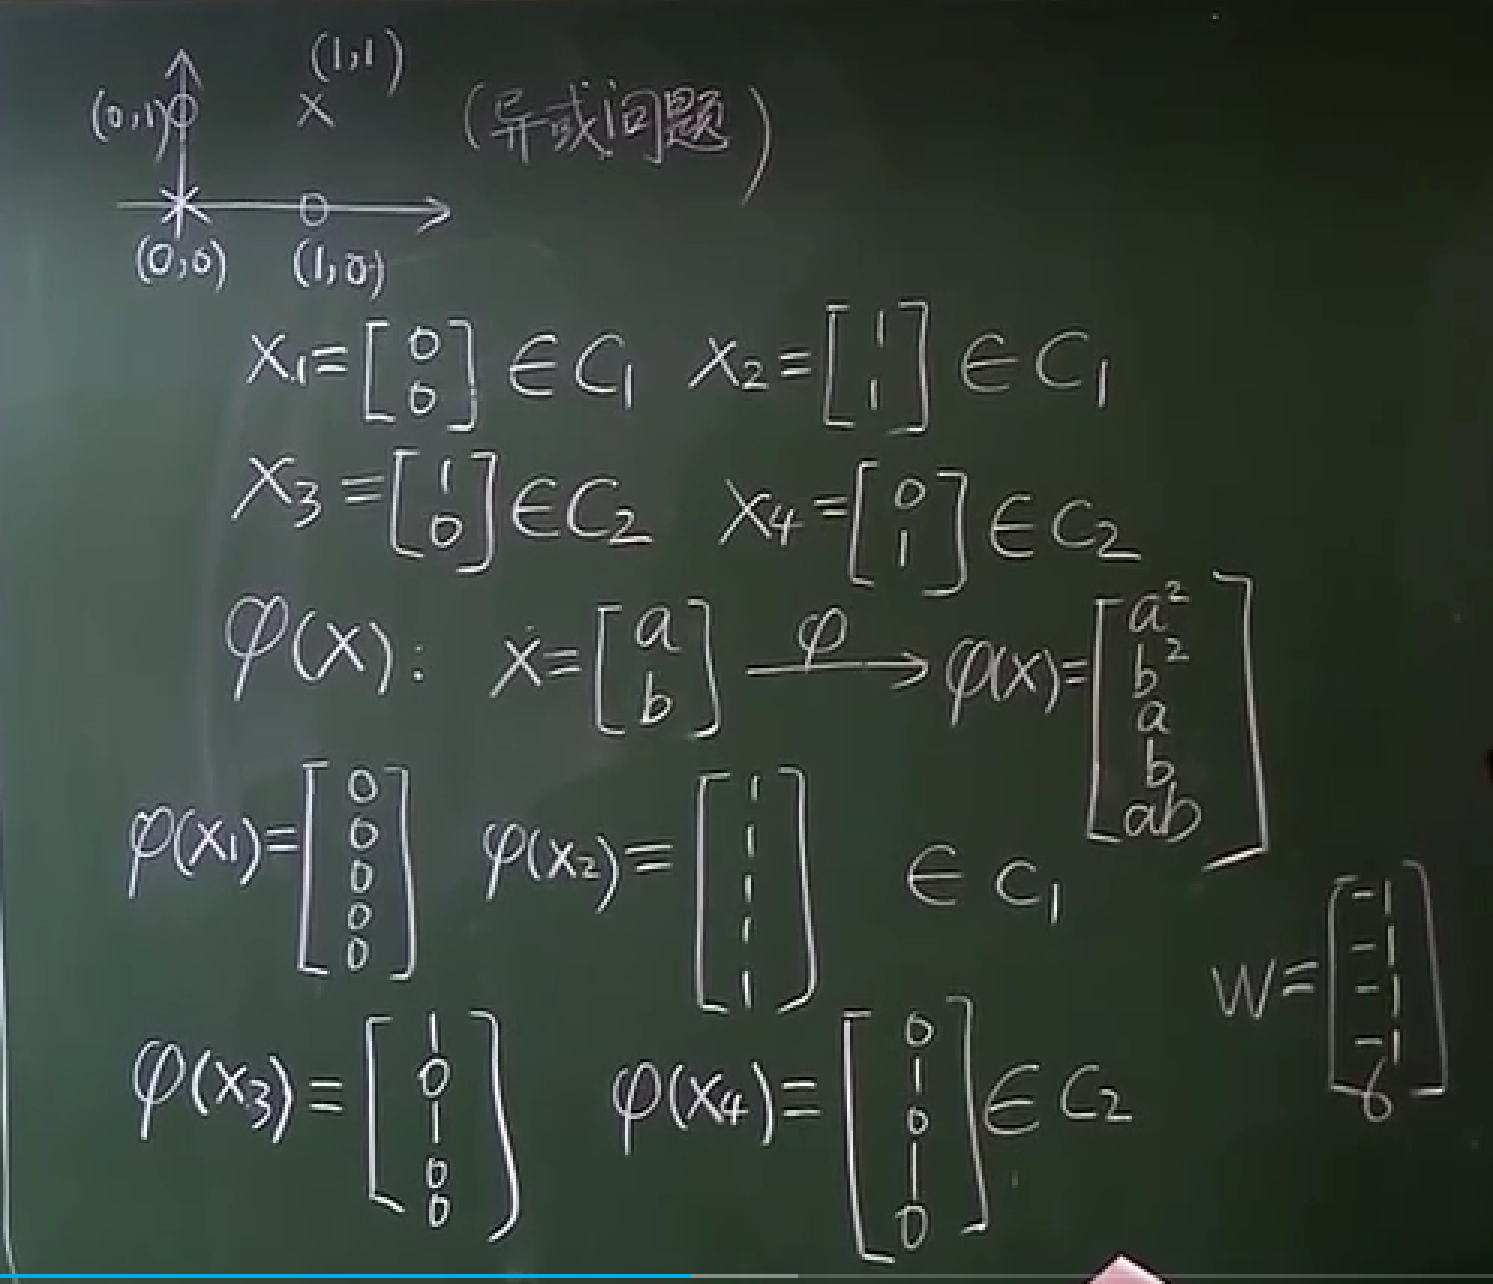 (1,1)
(0,1)
(异或问题)
(0,0) (1,0)
X₁=[0 0] ∈ C₁ X₂=[1 1] ∈ C₁
X₃=[1 0] ∈ C₂ X₄=[0 1] ∈ C₂
φ(X): X=[a b] φ→ φ(X)=[a² b² a b ab]
φ(X₁)=[0 0 0 0 0] φ(X₂)=[1 1 1 1 1] ∈ C₁
W=[-1 -1 -1 -1 6]
φ(X₃)=[1 0 1 0 0] φ(X₄)=[0 1 0 1 0] ∈ C₂